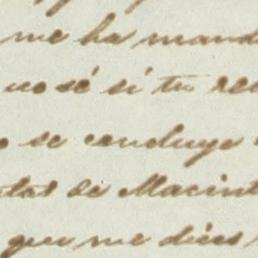 me ha mand
no sé si tu re
se concluye
de Macint
que me dices